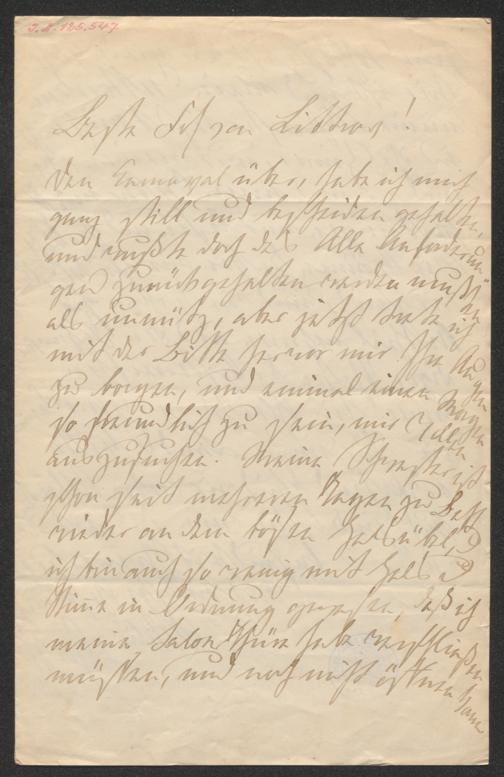 I.N. 125.547
Beste Frl von Littrow!
Den Carnaval über, habe ich mich
ganz still und bescheiden gehalten,
und wußte doch daß Alle Anforderun
gen zurückgehalten werden mußten
als unnütz, aber jetzt trete ich
mit der Bitte hervor mir Ihr
zu borgen, und einmal einen
so freundlich zu sein, mir
auszusuchen. Meine Schwester ist
schon seit mehreren Tagen zu Bett
wieder an dem bösen Halsübel,
ich bin auch so wenig mit Hals u
Stimme in Ordnung gewesen, daß ich
meine Salon Thüre habe verschließen
müssen, und noch nicht öffnen kann